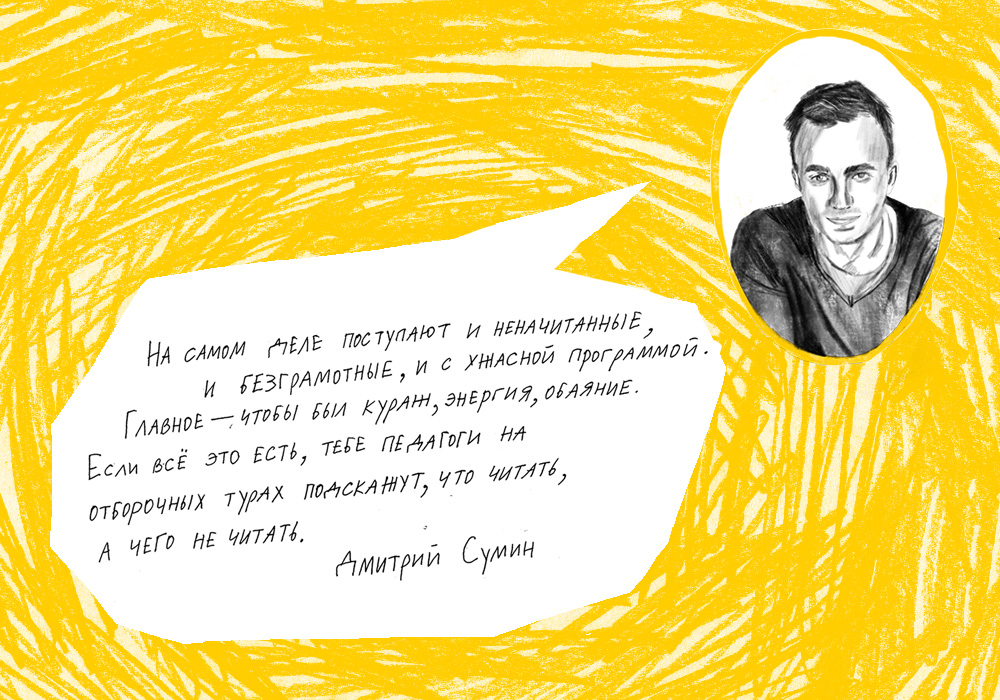 На самом деле поступают и неначитанные,
и безграмотные, и с ужасной программой.
Главное — чтобы был кураж, энергия, обаяние.
Если всё это есть, тебе педагоги на
отборочных турах подскажут, что читать,
а чего не читать.
Дмитрий Сумин